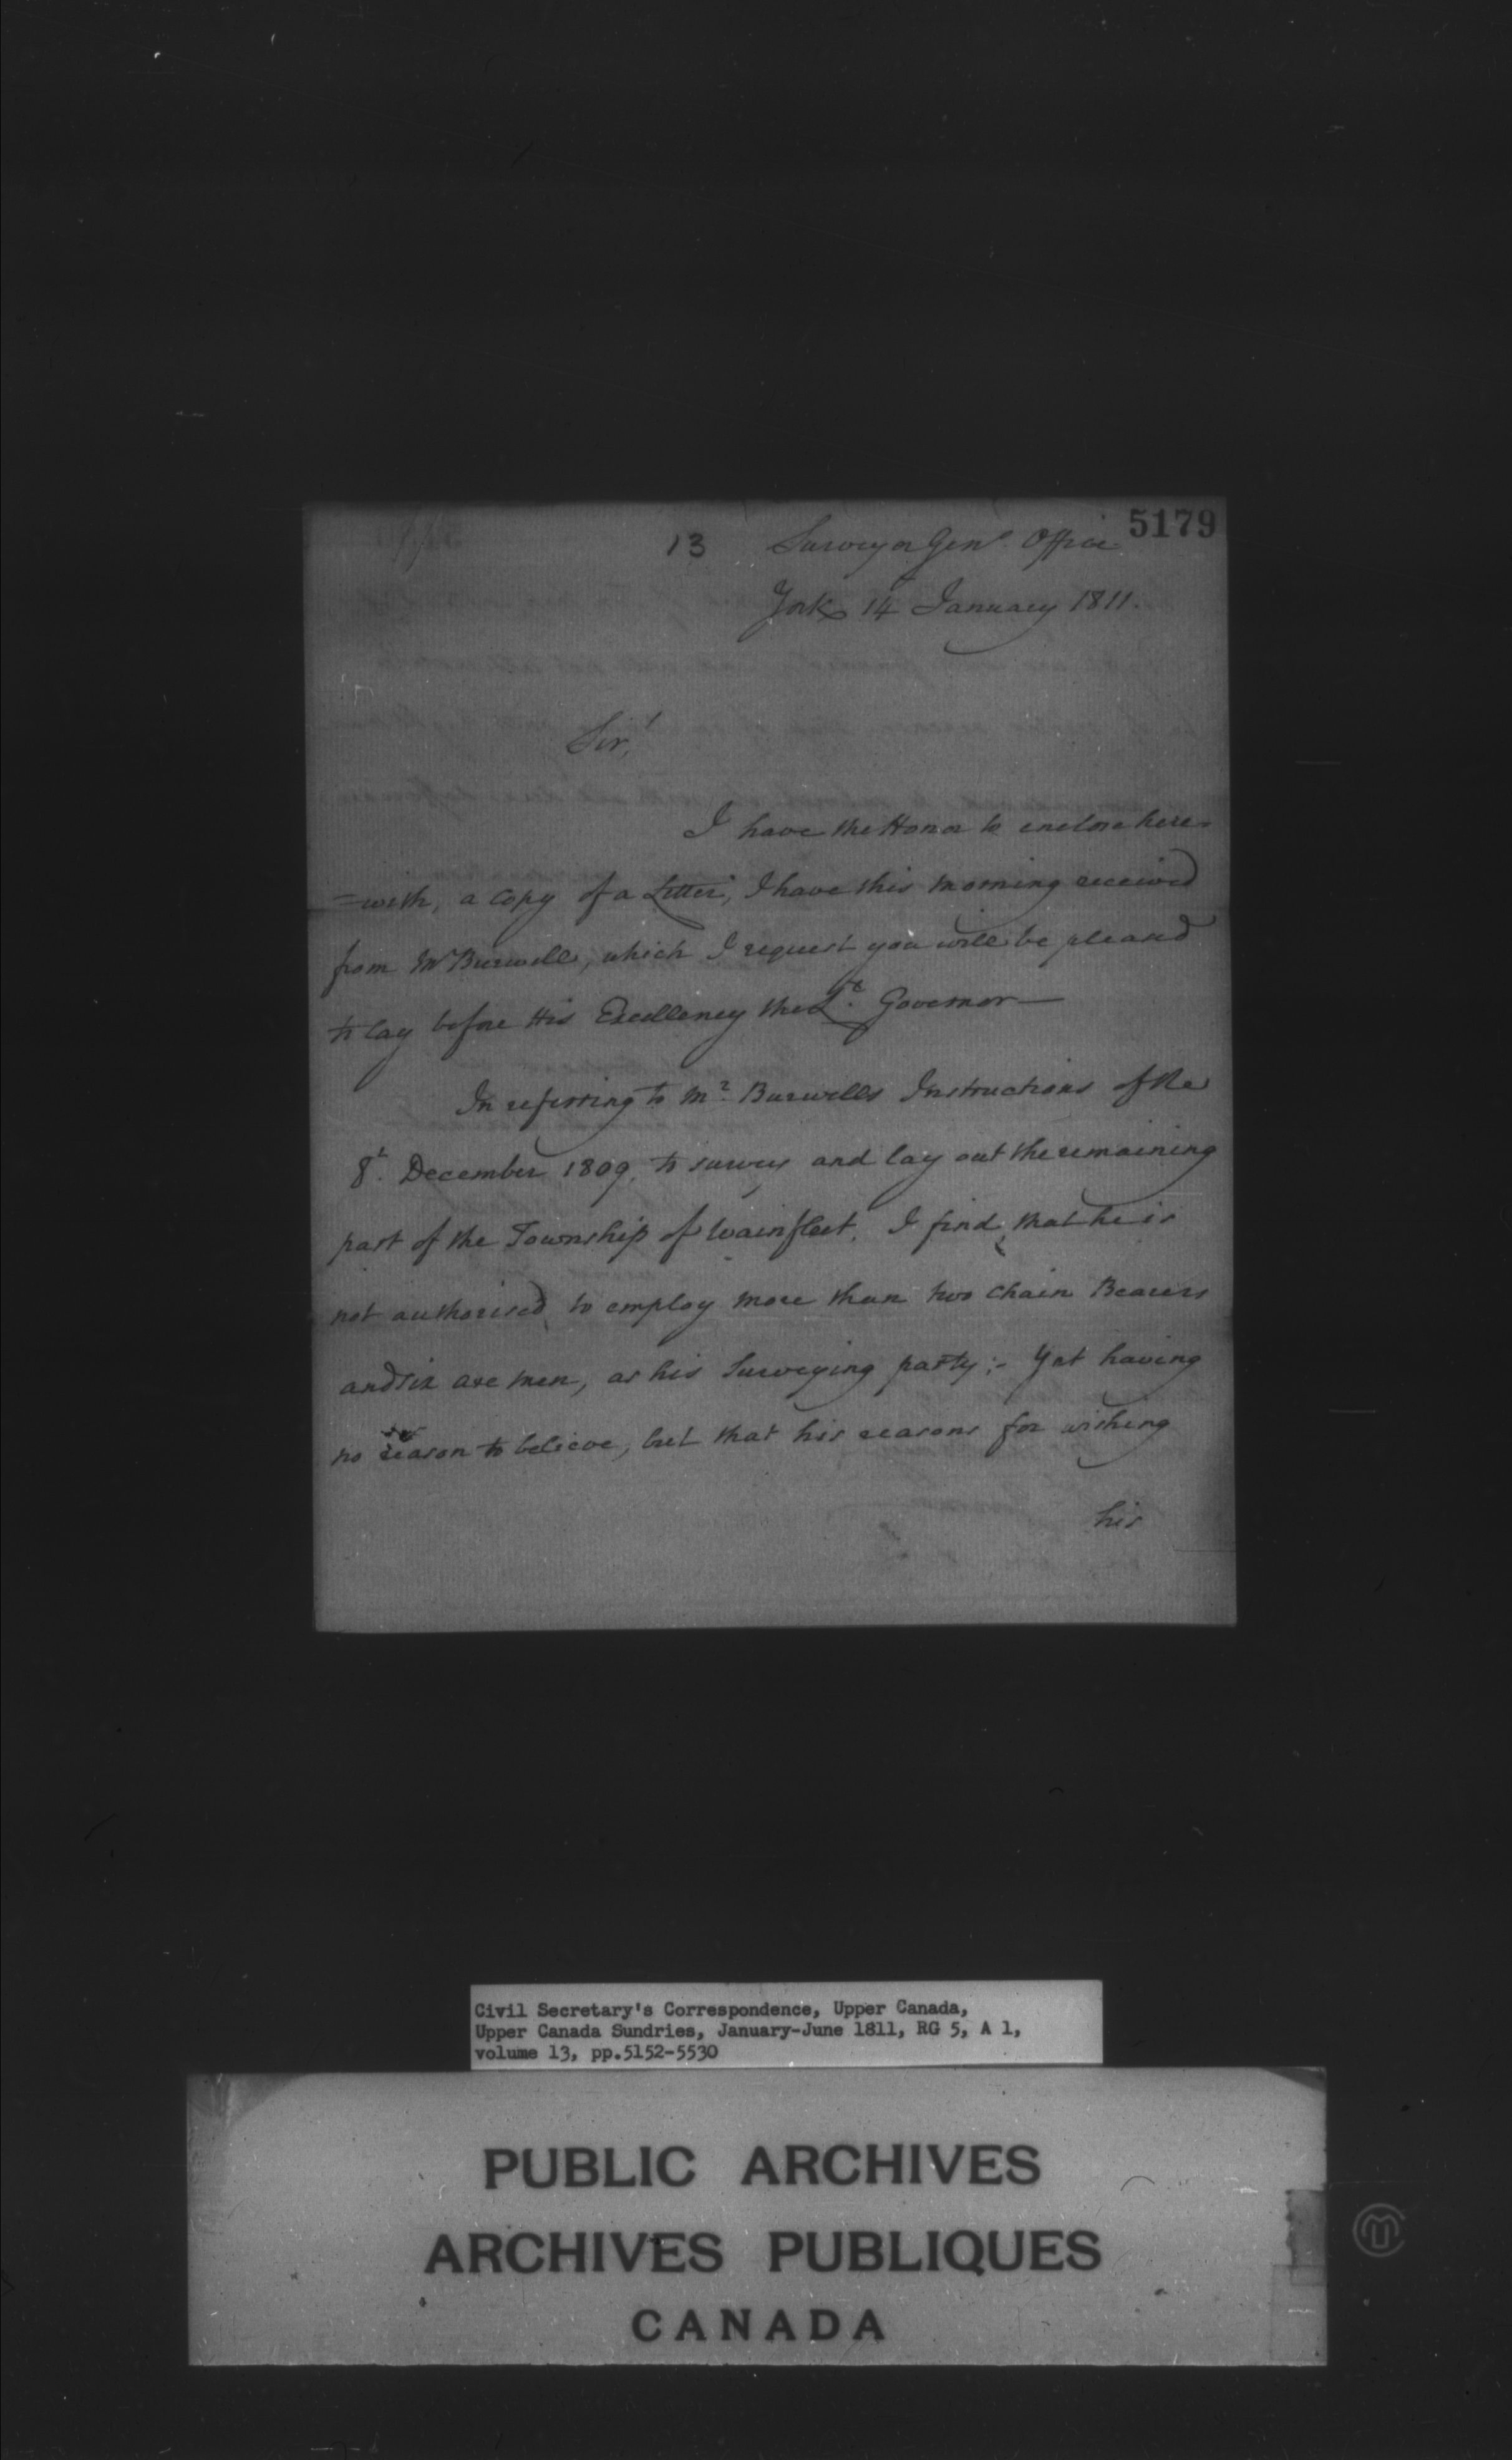 5179
13 Surveyor Genl. Office
York 14 January 1811.
Sir,
I have the Honor to enclose here=
=with, a Copy of a Letter, I have this morning received
from Mr Burwell, which I request you will be pleased
to lay before His Excellency the Lt. Governor—
In referring to Mr. Burwells Instructions of the
8th. December 1809, to survey and lay out the remaining
part of the Township of Wainfleet. I find, that he is
not authorised, to employ more than two Chain Bearers
and six axe men, as his Surveying party:- Yet having
no reason to believe, but that his reasons for wishing
his
Civil Secretary's Correspondence, Upper Canada,
Upper Canada Sundries, January-June 1811, RG 5, A 1,
volume 13, pp.5152-5530
PUBLIC ARCHIVES
ARCHIVES PUBLIQUES
CANADA